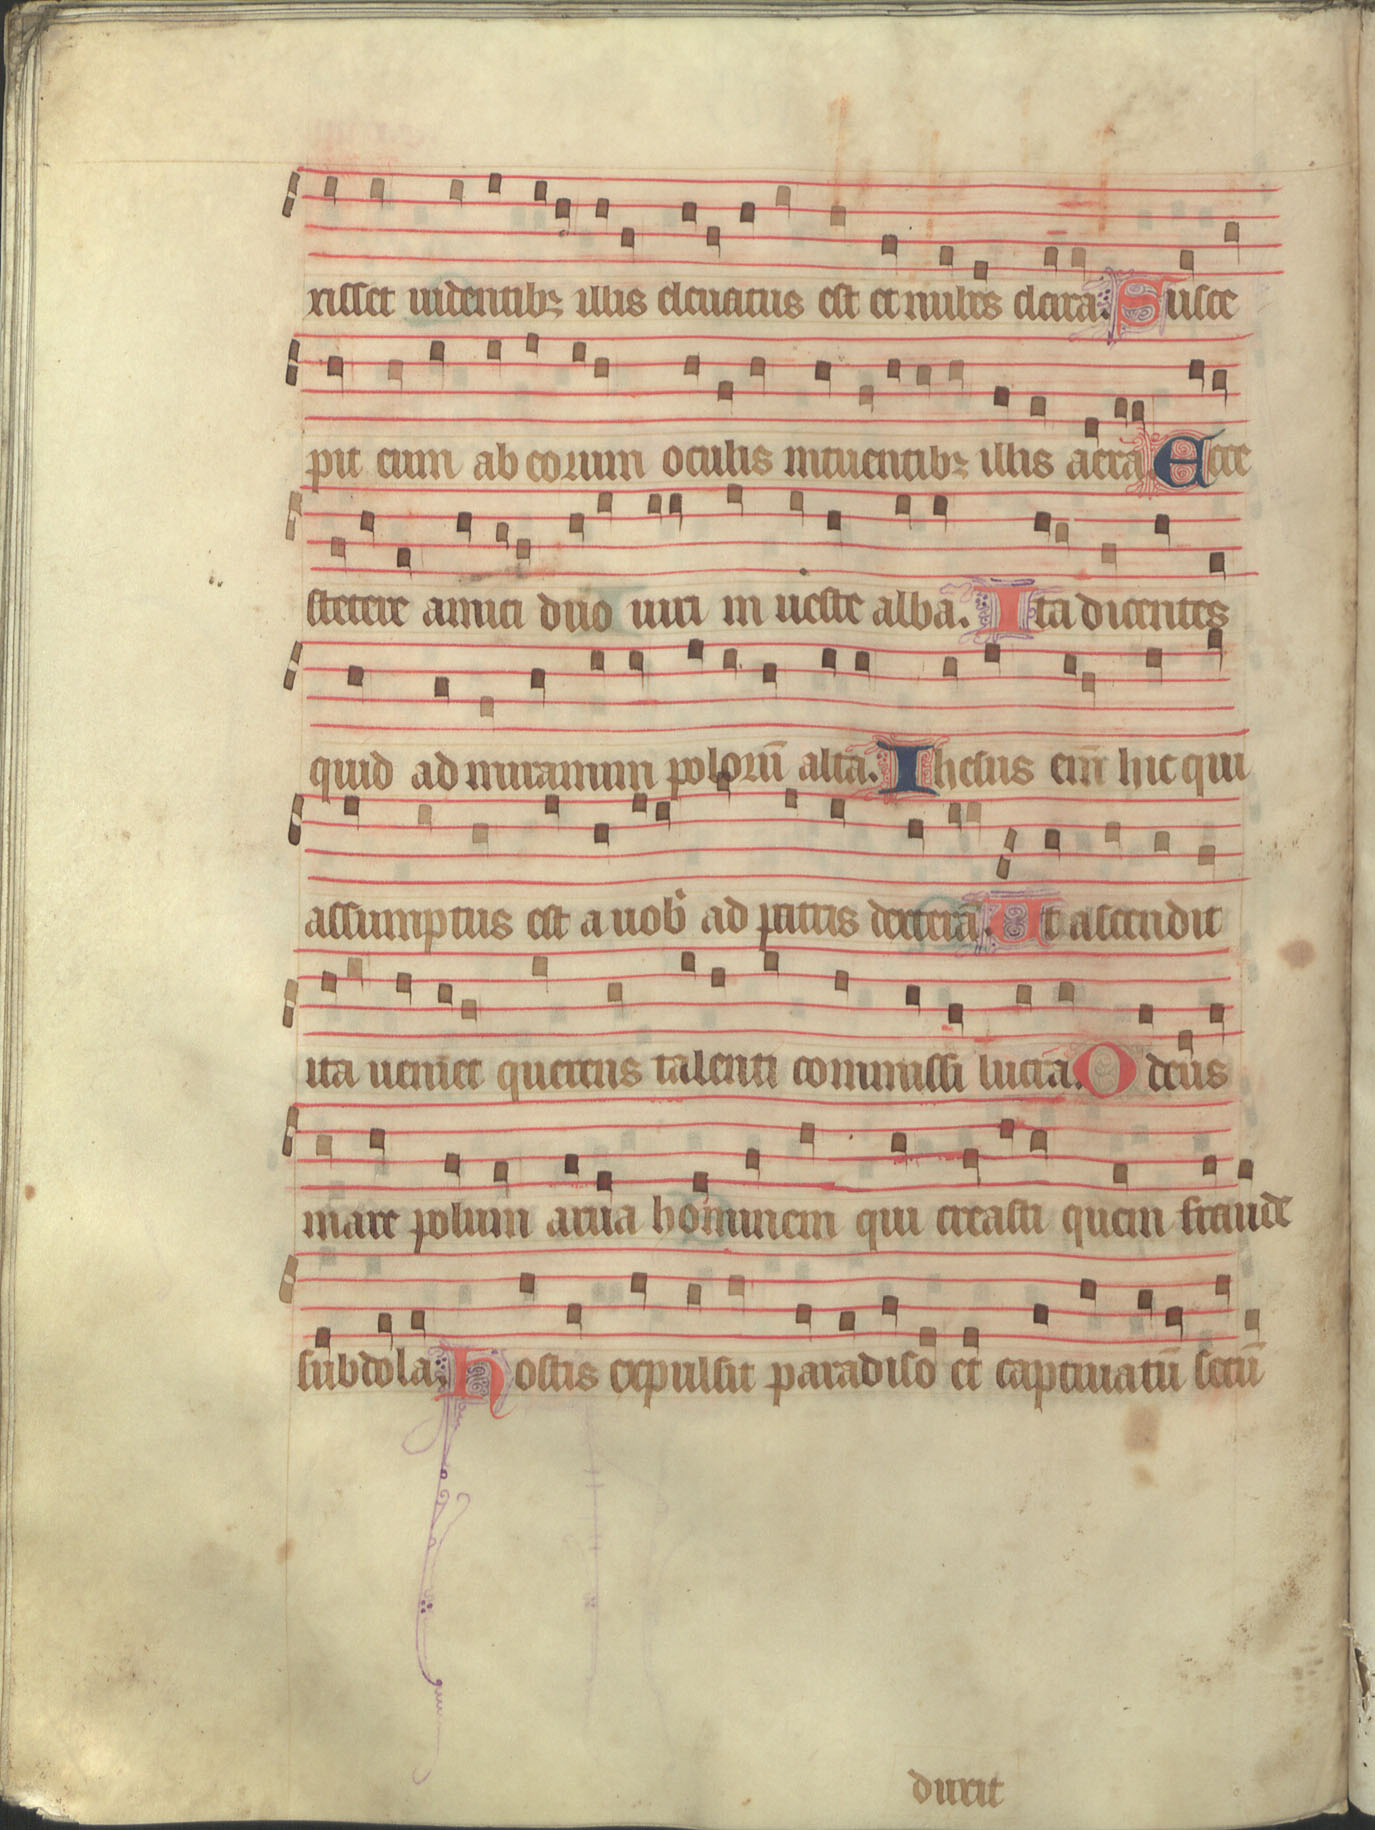 xisset uidentibꝫ illis eleuatus est et nubes clara. Susce
pit eum ab eorum oculis intuentibꝫ illis aera Ecce
stetere amicti duo uiri in ueste alba. Ita dicentes
quid ad miramini polorū alta. Ihesus em̄ hic qui
assumptus est a uob᷒ ad patris dexterā. Ut ascendit
ita ueniet querens talenti commissi lucra. O deus
mare polum arua hominem qui creasti quem fraude
subdola. Hostis expulsit paradiso et captiuatū secū
duxit